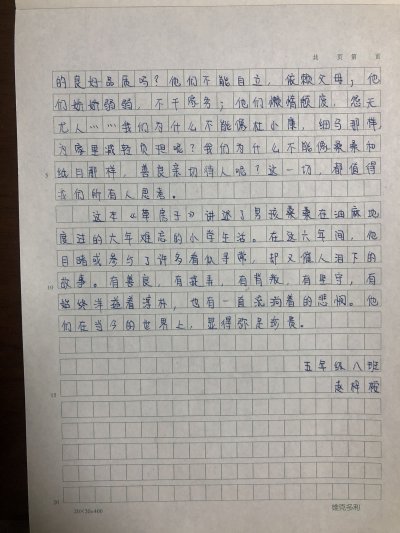 共 页 第 页
的良好品质吗？他们不能自立，依赖父母；他
们娇娇弱弱，不干家务；他们懒惰颓废，怨天
尤人……我们为什么不能像杜小康，细马那样，
为家里减轻负担呢？我们为什么不能像桑桑和
纸月那样，善良亲切待人呢？这一切，都值得
5
我们所有人思考。
这本《草房子》讲述了男孩桑桑在油麻地
度过的六年难忘的小学生活。在这六年间，他
目睹或参与了许多看似寻常，却又催人泪下的
故事。有善良，有，有背叛，有坚守，有
10
始终洋溢着淳朴，也有一直流淌着的悲悯。他
们在当今的世界上，显得弥足珍贵。
五年级八班
赵梓
15
20
20×20=400
维克多利